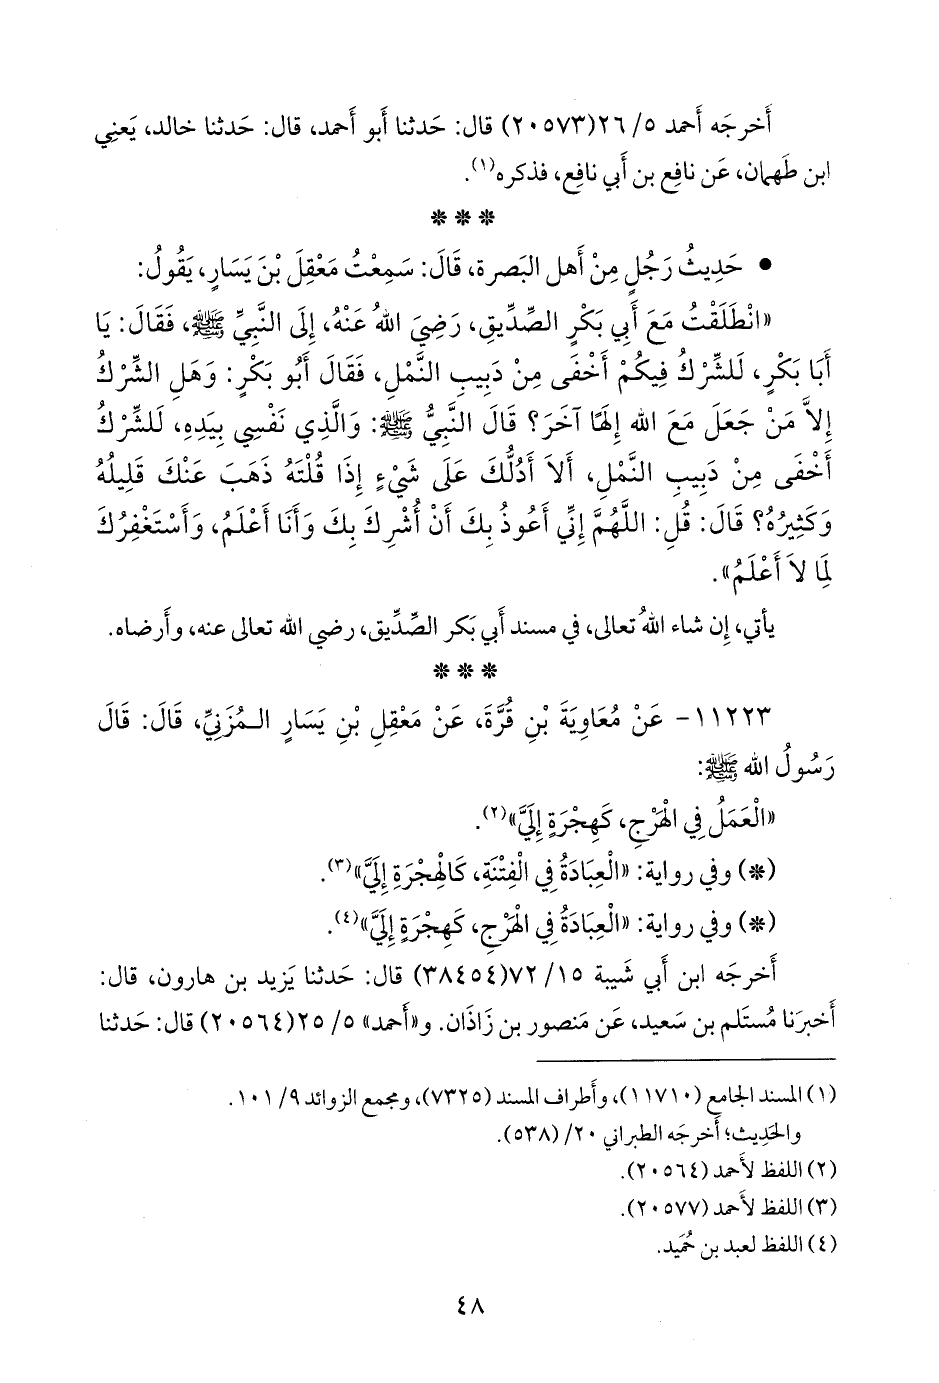 أَخرجَه أَحمد ٥/ ٢٦(٢٠٥٧٣) قال: حَدثنا أَبو أَحمد، قال: حَدثنا خالد، يَعني
ابن طَهمان، عَن نافِع بن أَبي نافِع، فذكره(١).
* * *
• حَدِيثُ رَجُلٍ مِنْ أَهل البَصرة، قَالَ: سَمِعْتُ مَعْقِلَ بْنَ يَسَارٍ، يَقُولُ:
«انْطَلَقْتُ مَعَ أَبِي بَكْرٍ الصِّدِّيقِ، رَضِيَ اللهُ عَنْهُ، إِلَى النَّبِيِّ ﷺ، فَقَالَ: يَا
أَبَا بَكْرٍ، لَلشِّرْكُ فِيكُمْ أَخْفَى مِنْ دَبِيبِ النَّمْلِ، فَقَالَ أَبُو بَكْرٍ: وَهَلِ الشِّرْكُ
إِلاَّ مَنْ جَعَلَ مَعَ الله إِلَهًا آخَرَ؟ قَالَ النَّبِيُّ ﷺ: وَالَّذِي نَفْسِي بِيَدِهِ، لَلشِّرْكُ
أَخْفَى مِنْ دَبِيبِ النَّمْلِ، أَلاَ أَدُلُّكَ عَلَى شَيْءٍ إِذَا قُلْتَهُ ذَهَبَ عَنْكَ قَلِيلُهُ
وَكَثِيرُهُ؟ قَالَ: قُلِ: اللَّهُمَّ إِنِّي أَعُوذُ بِكَ أَنْ أُشْرِكَ بِكَ وَأَنَا أَعْلَمُ، وَأَسْتَغْفِرُكَ
لِمَا لاَ أَعْلَمُ».
يأتي، إِن شاء اللهُ تعالى، في مسند أَبي بَكر الصِّدِّيق، رضي الله تعالى عنه، وأَرضاه.
* * *
١١٢٢٣- عَنْ مُعَاوِيَةَ بْنِ قُرَّةَ، عَنْ مَعْقِلِ بْنِ يَسَارٍ الـمُزَنِيِّ، قَالَ: قَالَ
رَسُولُ الله ﷺ:
«الْعَمَلُ فِي الْهَرْجِ، كَهِجْرَةٍ إِلَيَّ»(٢).
(*) وفي رواية: «الْعِبَادَةُ فِي الْفِتْنَةِ، كَالْهِجْرَةِ إِلَيَّ»(٣).
(*) وفي رواية: «الْعِبَادَةُ فِي الْهَرْجِ، كَهِجْرَةٍ إِلَيَّ»(٤).
أَخرجَه ابن أَبي شَيبة ١٥/ ٧٢(٣٨٤٥٤) قال: حَدثنا يَزيد بن هارون، قال:
أَخبرَنا مُستَلم بن سَعيد، عَن مَنصور بن زَاذَان. و«أَحمد» ٥/ ٢٥(٢٠٥٦٤) قال: حَدثنا
(١) المسند الجامع (١١٧١٠)، وأَطراف المسند (٧٣٢٥)، ومجمع الزوائد ٩/ ١٠١.
والحَدِيث؛ أَخرجَه الطبراني ٢٠/ (٥٣٨).
(٢) اللفظ لأَحمد (٢٠٥٦٤).
(٣) اللفظ لأَحمد (٢٠٥٧٧).
(٤) اللفظ لعبد بن حُمَيد.
٤٨